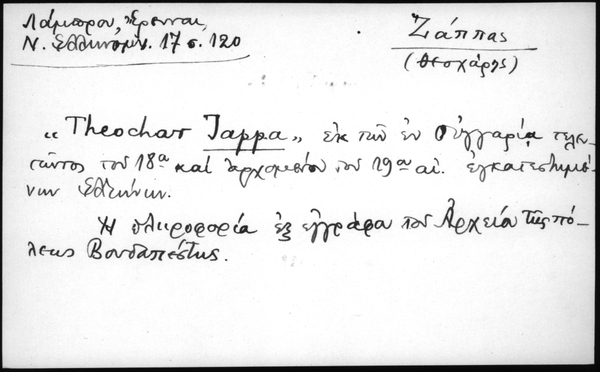 Λάμπρου, Έρευναι,
Ν. Ελληνομν. 17 σ. 120
Ζάππας
(Θεοχάρης)
"Theochar Jappa", εκ των εν Ουγγαρία τελευ-
τώντος του 18ου και αρχομένου του 19ου αι. εγκατεστημέ-
νων Ελλήνων.
Η πληροφορία εξ εγγράφου του Αρχείου της πό-
λεως Βουδαπέστης.